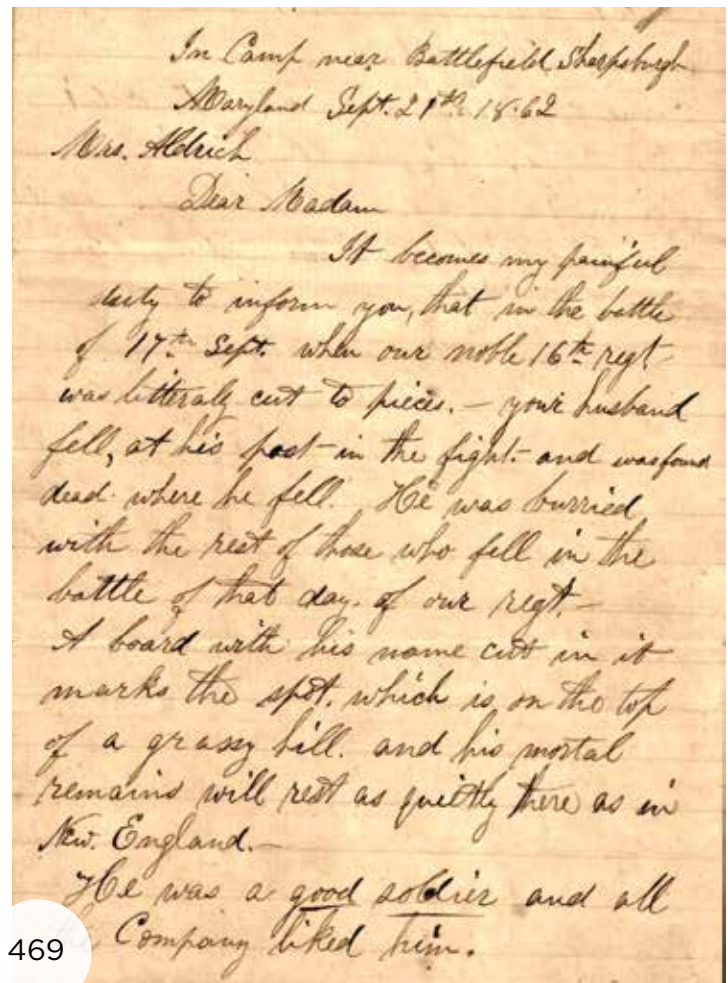 In Camp near Battlefield Sharpsburgh
Maryland Sept. 21st 1862
Mrs. Aldrich
Dear Madam
It becomes my painful
duty to inform you, that in the battle
of 17th Sept. when our noble 16th regt
was litteraly cut to pieces. – your husband
fell, at his post in the fight. and was found
dead where he fell. He was burried
with the rest of those who fell in the
battle of that day. of our regt. –
A board with his name cut in it
marks the spot. which is on the top
of a grassy hill. and his mortal
remains will rest as quietly there as in
New. England. –
He was a good soldier and all
the Company liked him.
469